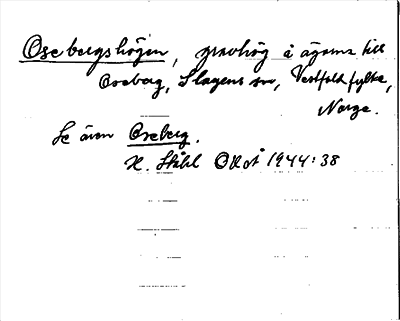 Osebergshögen, gravhög å ägorna till
Oseberg, Slagens sn, Vestfold fylke,
Norge.
Se även Oseberg.
H. Ståhl ORoÅ 1944:38